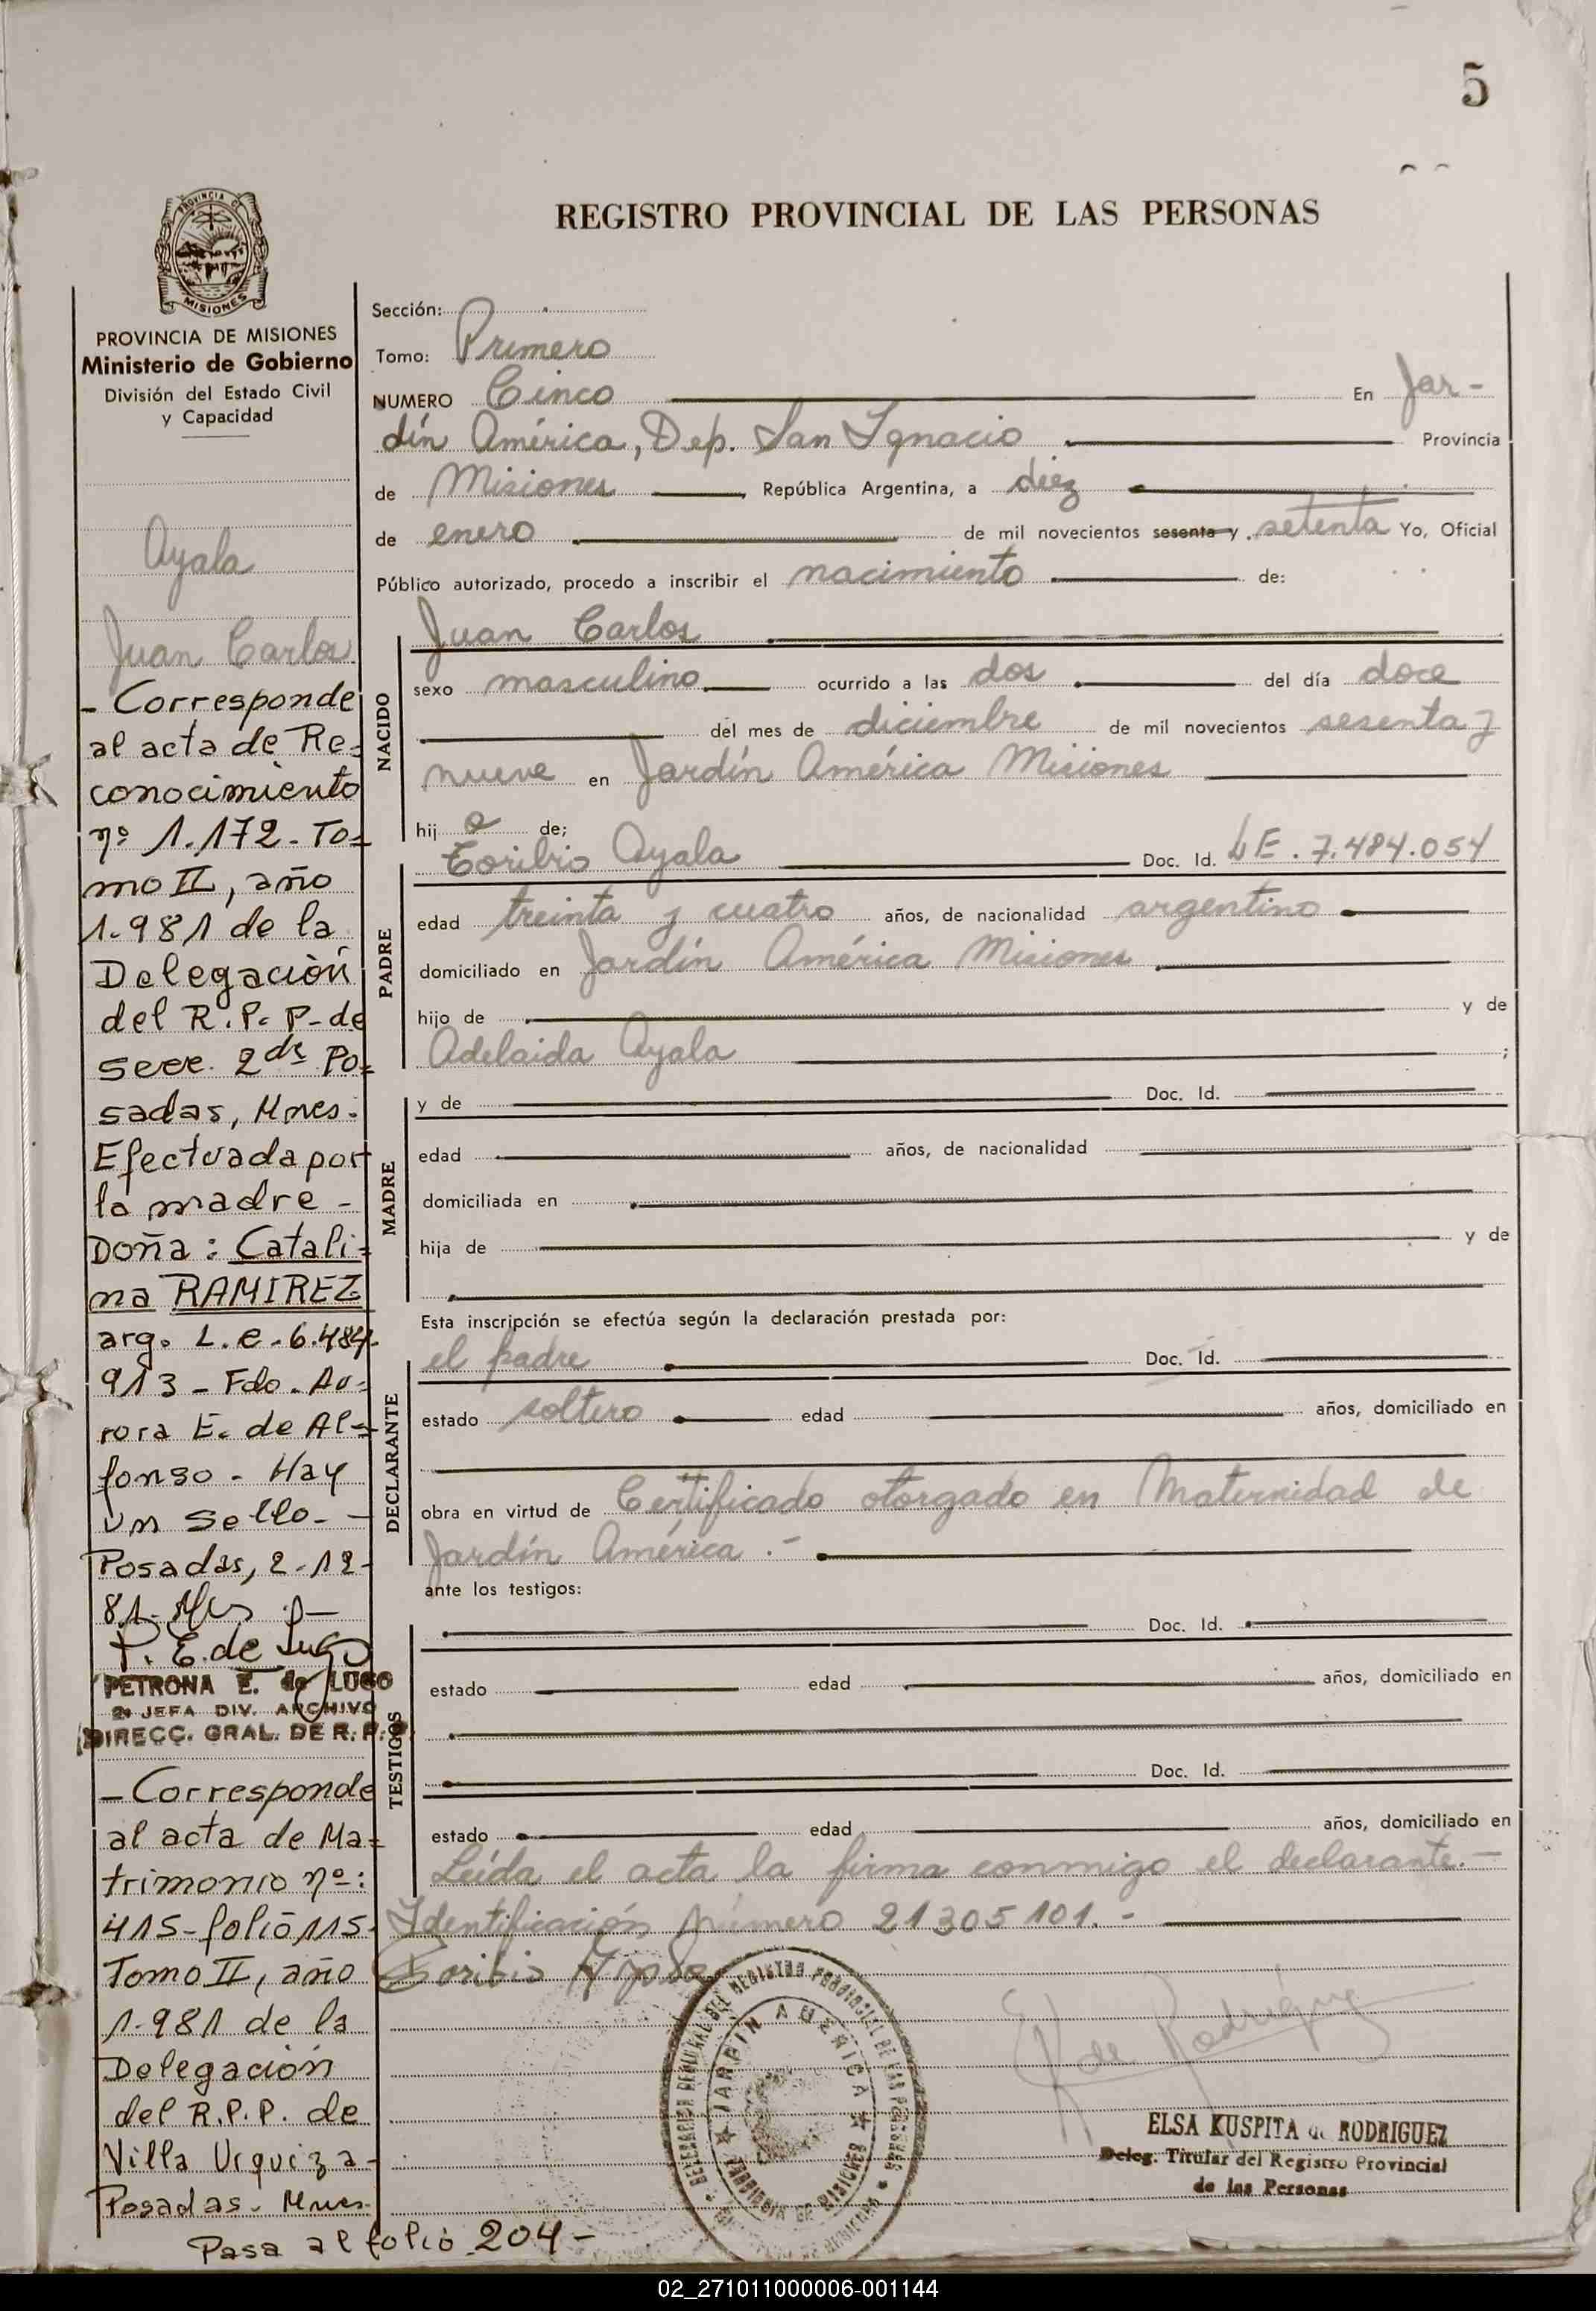 5
REGISTRO PROVINCIAL DE LAS PERSONAS
PROVINCIA DE
MISIONES
PROVINCIA DE MISIONES
Ministerio de Gobierno
División del Estado Civil
y Capacidad
Ayala
Juan Carlos
- Corresponde
al acta de Re=
conocimiento
nº 1.172. To=
mo II, año
1.981 de la
Delegación
del R.P.P. de
secc. 2da Po=
sadas, Mnes.
Efectuada por
la madre -
Doña: Catali=
na RAMIREZ
arg. L.e. 6.484.
913 - Fdo. Au=
rora E. de Al=
fonso - Hay
un sello. -
Posadas, 2-12-
81-
P. E. de Lugo
PETRONA E. de LUGO
2ª JEFA DIV. ARCHIVO
DIRECC. GRAL. DE R. P. P.
- Corresponde
al acta de Ma=
trimonio nº:
415-folio 115-
Tomo II, año
1.981 de la
Delegación
del R.P.P. de
Villa Urquiza-
Posadas. Mnes.
Pasa al folio 204-
Sección:
Tomo: Primero
NUMERO Cinco En Jar-
dín América, Dep. San Ignacio Provincia
de Misiones República Argentina, a diez
de enero de mil novecientos sesenta y setenta Yo, Oficial
Público autorizado, procedo a inscribir el nacimiento de:
NACIDO
Juan Carlos
sexo masculino ocurrido a las dos del día doce
del mes de diciembre de mil novecientos sesenta y
nueve en Jardín América Misiones
hij o de;
PADRE
Toribio Ayala Doc. Id. LE. 7.484.054
edad treinta y cuatro años, de nacionalidad argentino
domiciliado en Jardín América Misiones
hijo de y de
Adelaida Ayala ;
MADRE
y de Doc. Id.
edad años, de nacionalidad
domiciliada en
hija de y de
Esta inscripción se efectúa según la declaración prestada por:
DECLARANTE
el padre Doc. Id.
estado soltero edad años, domiciliado en
obra en virtud de Certificado otorgado en Maternidad de
Jardín América .-
ante los testigos:
TESTIGOS
Doc. Id.
estado edad años, domiciliado en
Doc. Id.
estado edad años, domiciliado en
Leída el acta la firma conmigo el declarante.-
Identificación número 21305101.-
Toribio Ayala
JARDIN AMERICA
PROVINCIA DE MISIONES
E K de Rodríguez
ELSA KUSPITA de RODRIGUEZ
Deleg. Titular del Registro Provincial
de las Personas
02_271011000006-001144